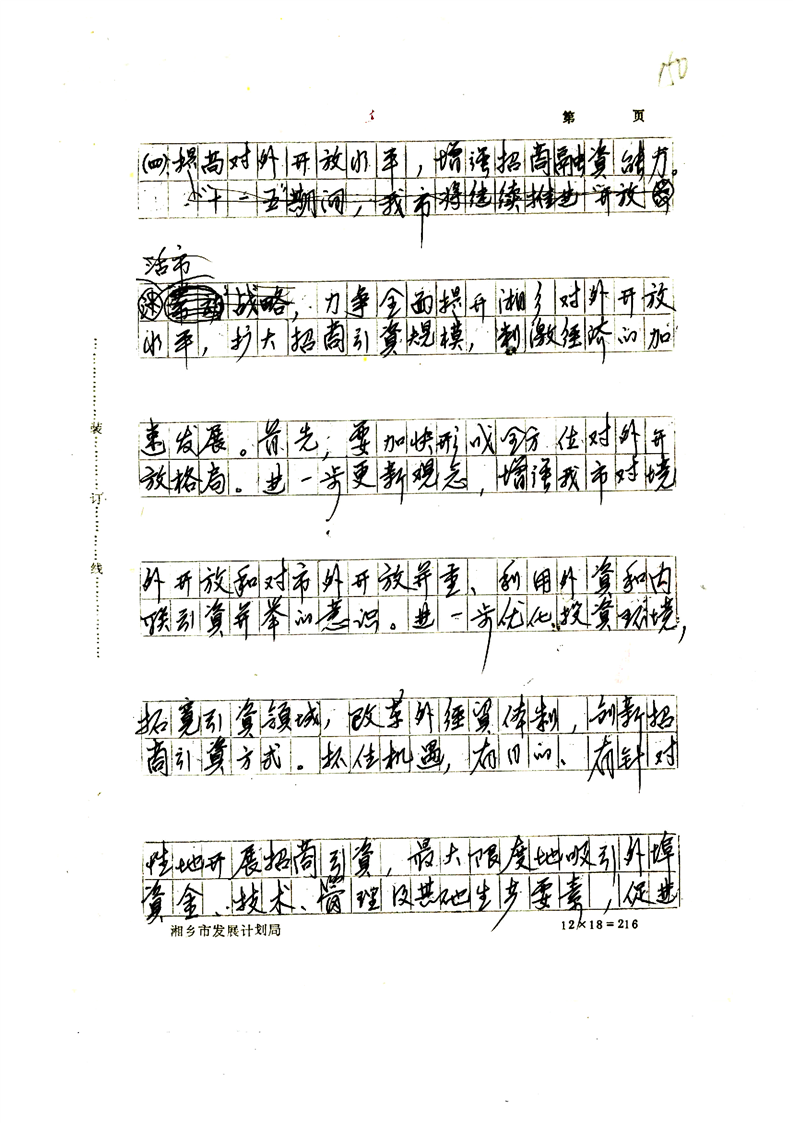 150
第 页
(四)提高对外开放水平，增强招商融资能力。
"十一五"期间，我市将继续推进"开放
活市
"战略，力争全面提升湘乡对外开放
水平，扩大招商引资规模，刺激经济的加
速发展。首先，要加快形成全方位对外开
放格局。进一步更新观念，增强我市对境
外开放和对市外开放并重、利用外资和内
联引资并举的意识。进一步优化投资环境，
拓宽引资领域，改革外经贸体制，创新招
商引资方式。抓住机遇，有目的、有针对
性地开展招商引资，最大限度地吸引外埠
资金、技术、管理及其他生产要素，促进
装
订
线
湘乡市发展计划局
12×18=216